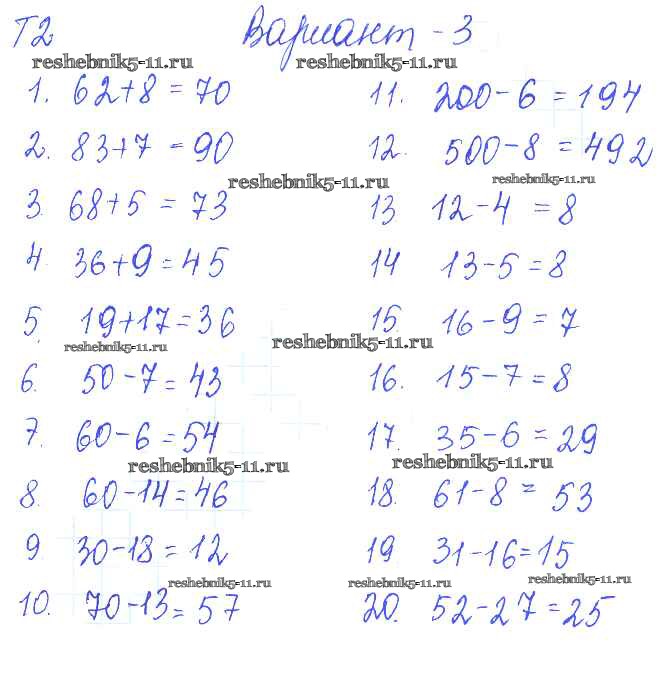 Т2 Вариант - 3
reshebnik5-11.ru reshebnik5-11.ru
1. 62+8 = 70
2. 83+7 = 90
reshebnik5-11.ru
3. 68+5 = 73
4. 36+9 = 45
5. 19+17 = 36
reshebnik5-11.ru
6. 50-7 = 43
7. 60-6 = 54
reshebnik5-11.ru
8. 60-14 = 46
9. 30-18 = 12
reshebnik5-11.ru
10. 70-13 = 57
11. 200-6 = 194
12. 500-8 = 492
reshebnik5-11.ru
13 12-4 = 8
14 13-5 = 8
15 16-9 = 7
reshebnik5-11.ru
16. 15-7 = 8
17. 35-6 = 29
reshebnik5-11.ru
18. 61-8 = 53
19 31-16 = 15
reshebnik5-11.ru reshebnik5-11.ru
20. 52-27 = 25